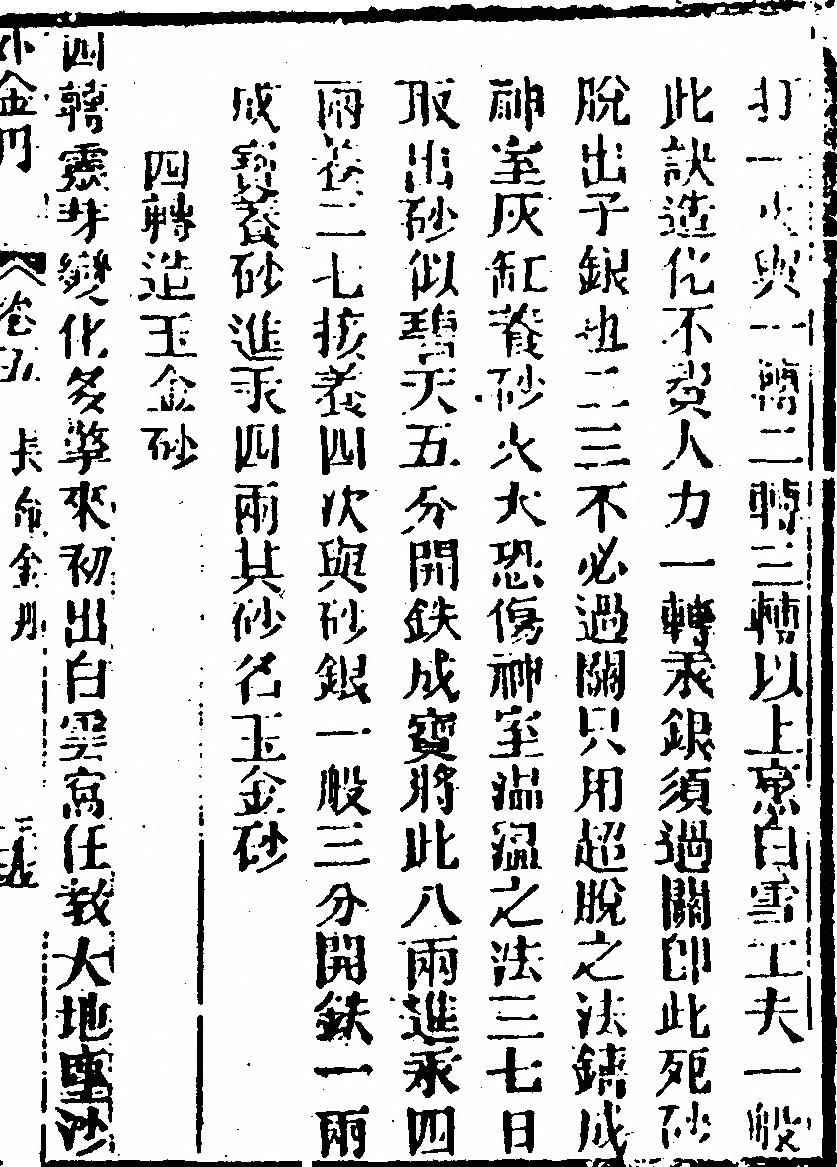 打一火與一轉二轉三轉以上烹白雪工夫一般
此訣造化不費人力一轉汞銀須過關卽此死砂
脫出子銀也二三不必過關只用超脫之法鑄成
神室灰缸養砂火大恐傷神室温温之法三七日
取出砂似碧天五分開鉄成寳將此八兩進汞四
兩养二七抜养四次與砂銀一般三分開鉄一兩
成寳養砂進汞四兩其砂名玉金砂
四轉造玉金砂
四轉霛芽變化多擎來初出白雲窩任教大地塵沙
卷五 長命金丹